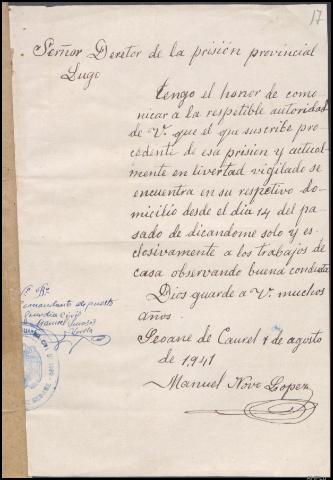 17
Señor Deretor de la prisión provincial
Lugo
tengo el honor de como
nicar a la respetible autoridad
de V. que el que suscribe pro
cedente de esa prision y actual
mente en livertad vigilado se
encuentra en su respectivo do-
micilio desde el dia 14 del pa
sado de dicandome solo y es
closivamente a los trabajos de
casa observando buena conducta
Dios guarde a V. muchos
años.
Seoane de Caurel 1 de agosto
de 1941
Manuel Novo Lopez
Vº Bº
Comandante de puesto
Guardia Civil
Manuel